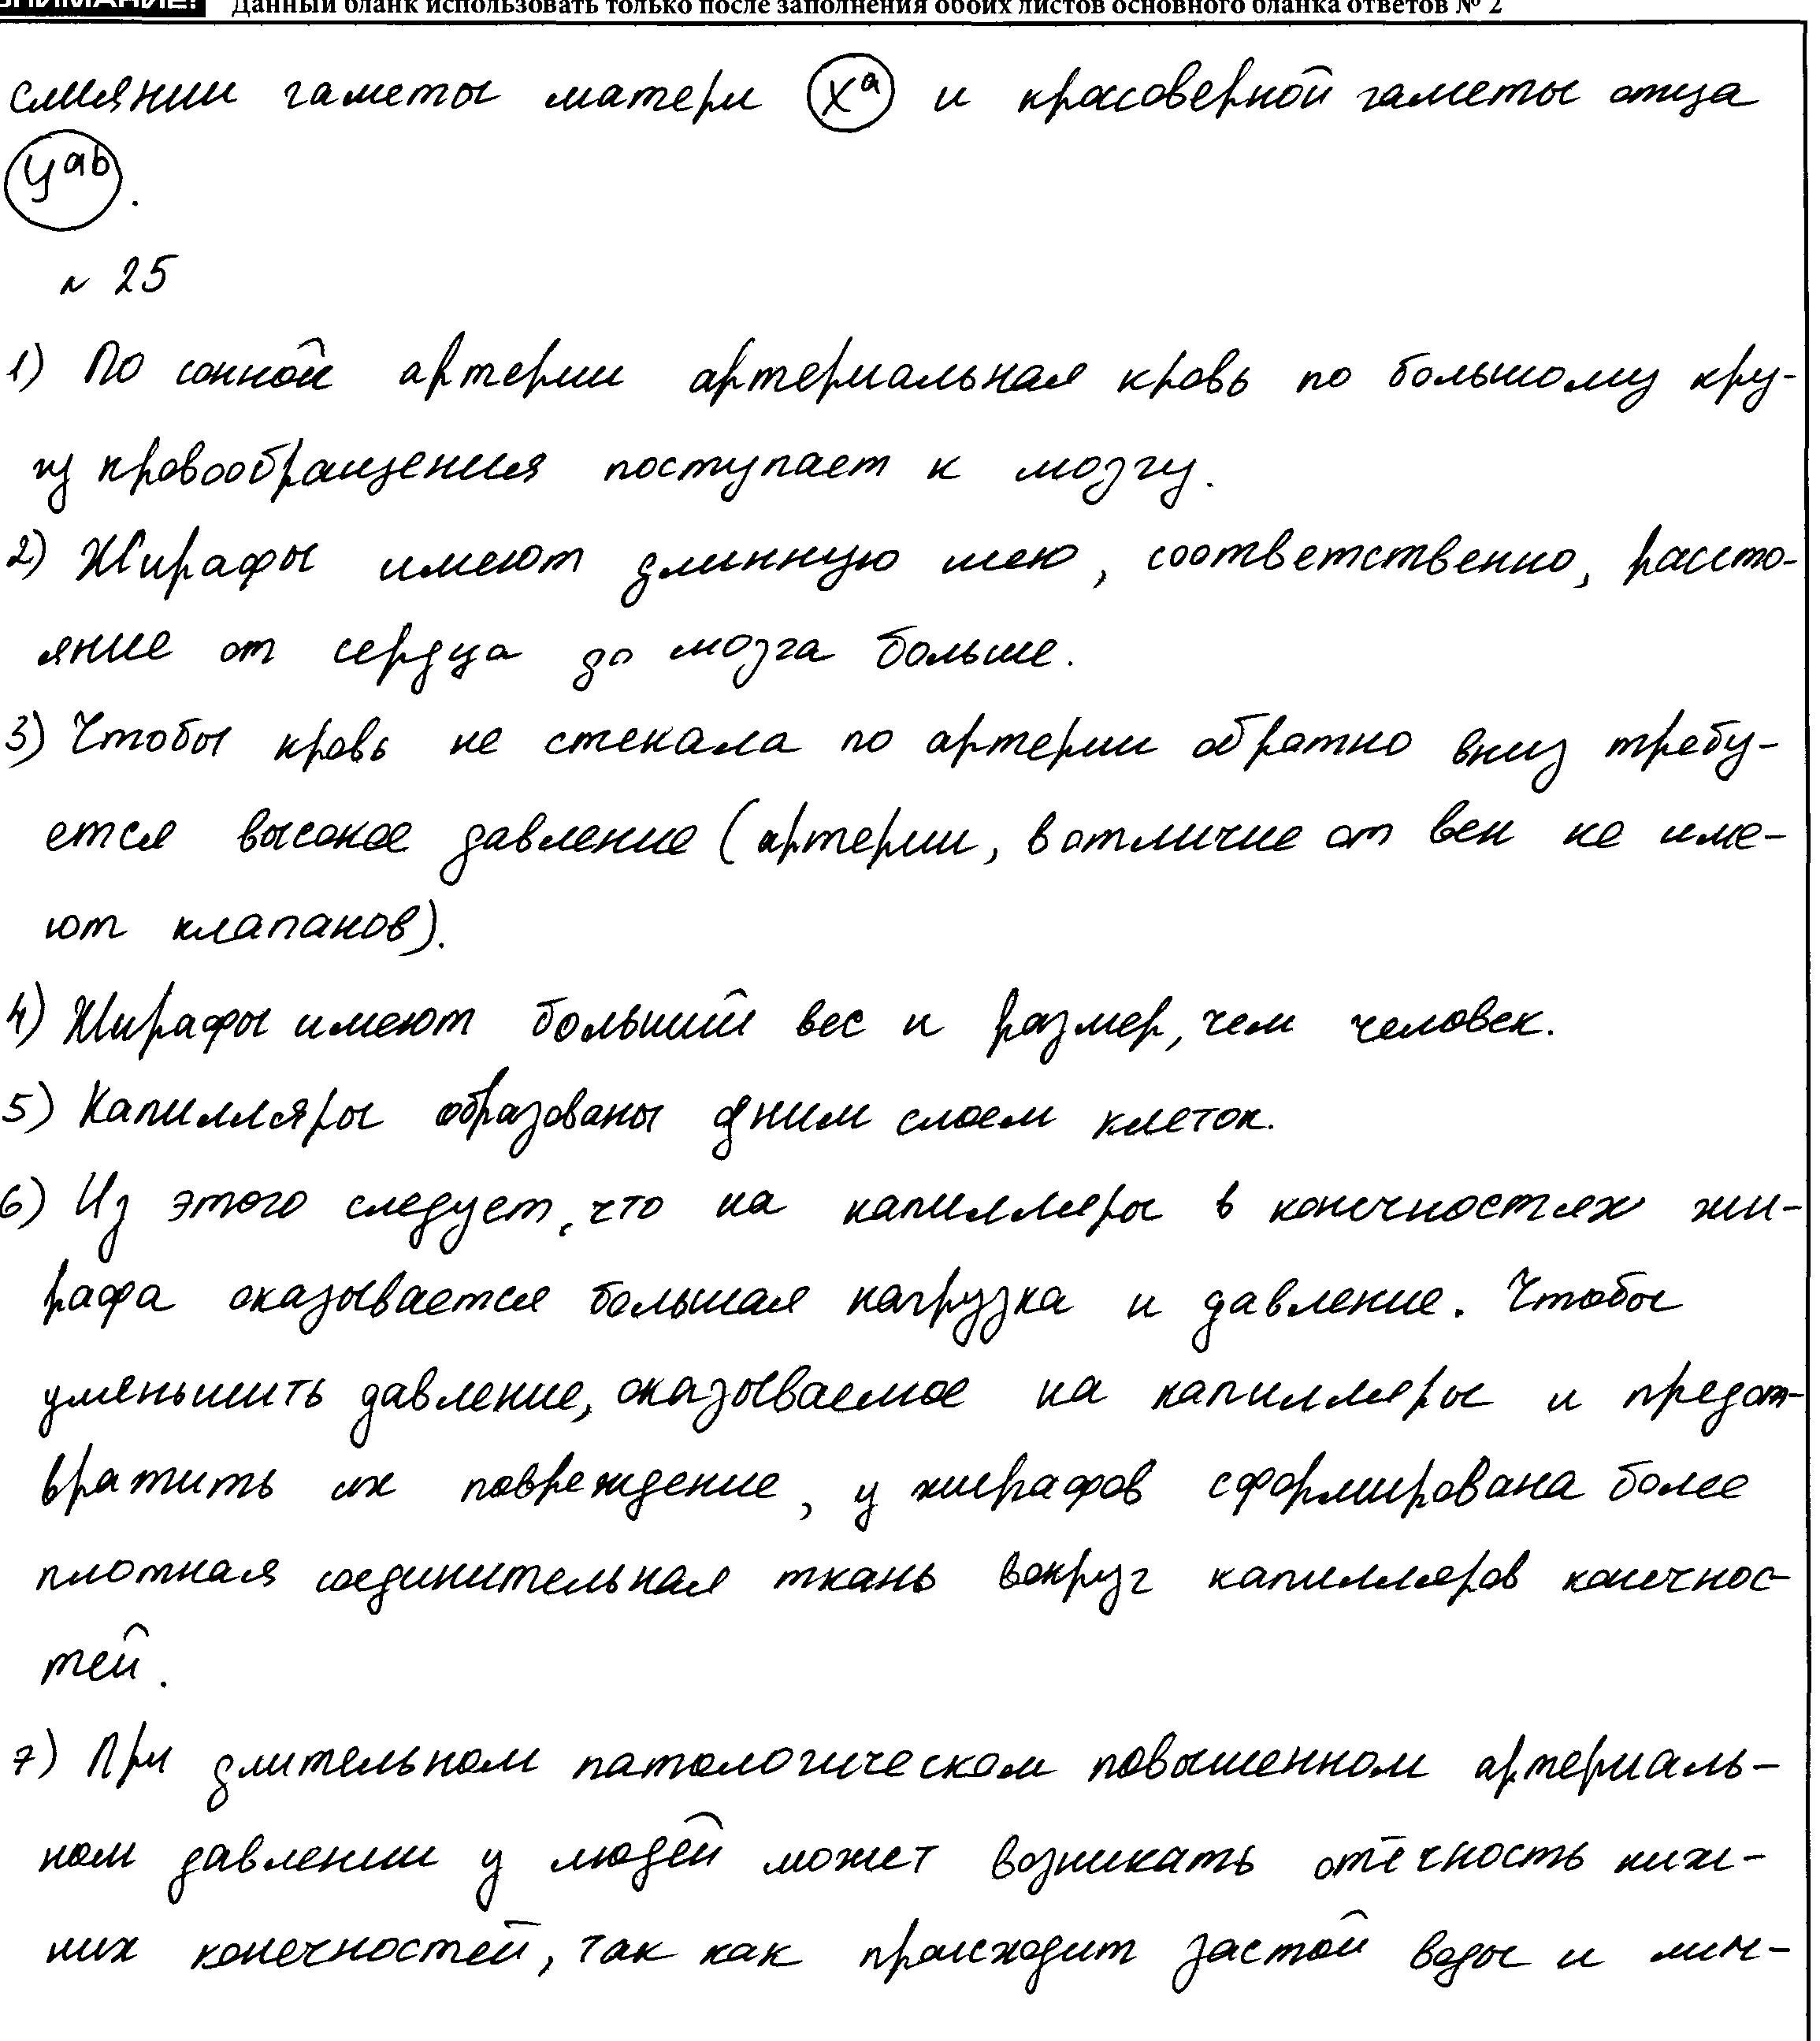 ВНИМАНИЕ! Данный бланк использовать только после заполнения обоих листов основного бланка ответов № 2
слиянии гаметы матери Xᵃ и кроссоверной гаметы отца
Yᵃᵇ.
№ 25
1) По сонной артерии артериальная кровь по большому кру-
гу кровообращения поступает к мозгу.
2) Жирафы имеют длинную шею, соответственно, рассто-
яние от сердца до мозга больше.
3) Чтобы кровь не стекала по артерии обратно вниз требу-
ется высокое давление (артерии, в отличие от вен не име-
ют клапанов).
4) Жирафы имеют больший вес и размер, чем человек.
5) Капилляры образованы одним слоем клеток.
6) Из этого следует, что на капилляры в конечностях жи-
рафа оказывается большая нагрузка и давление. Чтобы
уменьшить давление, оказываемое на капилляры и предот-
вратить их повреждение, у жирафов сформирована более
плотная соединительная ткань вокруг капилляров конечнос-
тей.
7) При длительном патологическом повышенном артериаль-
ном давлении у людей может возникать отёчность ниж-
них конечностей, так как происходит застой воды и лим-